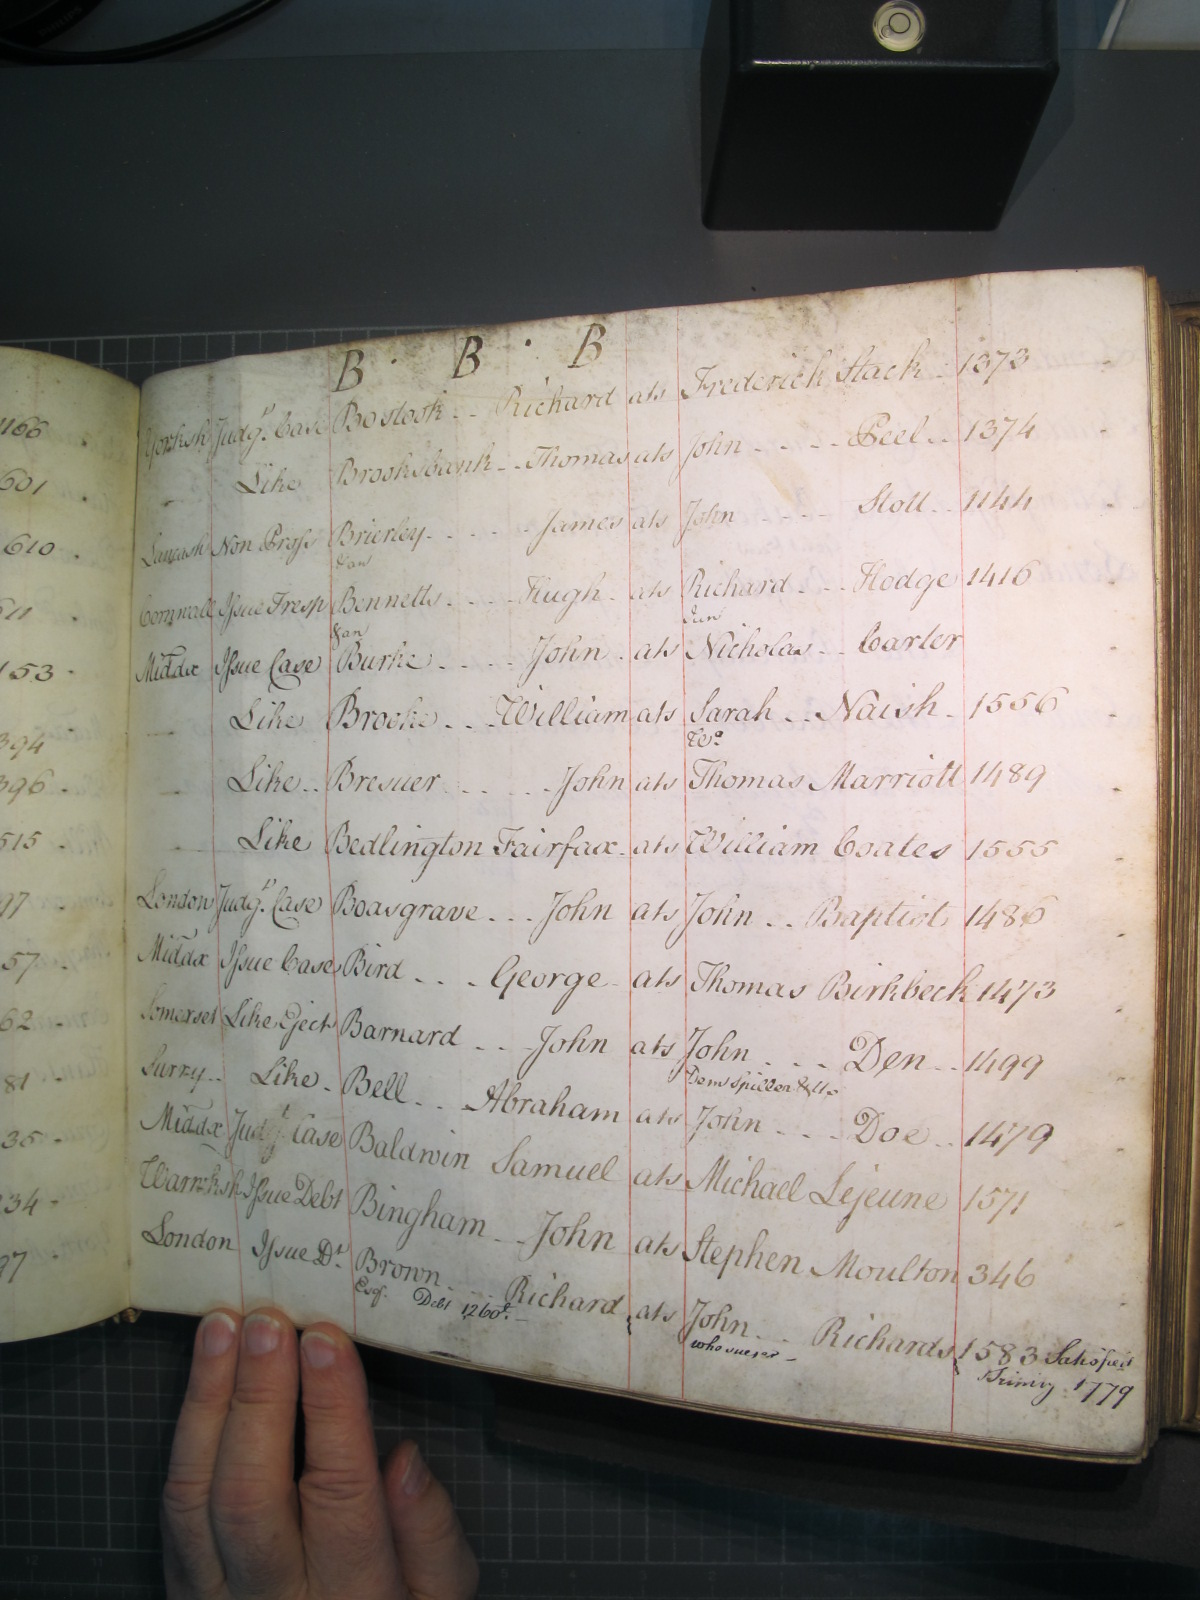 1166
601
610
611
153
394
396
515
97
57
62
81
35
234
97
B · B · B
Yorksh Judgt. Case Bostock .. Richard ats Frederick Stack .. 1373
Like Brooksbank .. Thomas ats John .... Peel .. 1374
Lancash Non Pross Brierley ..... James ats John .... Stott .. 1144
& an
Cornwall Issue Tresp Bennetts .... Hugh ats Richard ... Hodge 1416
& an Jun
Middx Issue Case Burke ..... John ats Nicholas .. Carter
Like Brooke ... William ats Sarah .. Naish . 1556
Wo.
Like .. Brewer .... John ats Thomas Marriott 1489
Like Bedlington Fairfax ats William Coates 1555
London Judgt. Case Boasgrave ... John ats John .. Baptist 1486
Middx Issue Case Bird ... George ats Thomas Birkbeck 1473
Somerset Like Eject Barnard ... John ats John ... Den .. 1499
Dem Spiller &
Surry .. Like . Bell .. Abraham ats John ... Doe .. 1479
Middx Judgt Case Baldwin Samuel ats Michael Lejeune 1571
Warwksh Issue Debt Bingham .. John ats Stephen Moulton 346
London Issue Dt. Brown .... Richard ats John ... Richards 1583 Satisfied
Esqr. Debt 1260£. — who sues &c — Trinity 1779